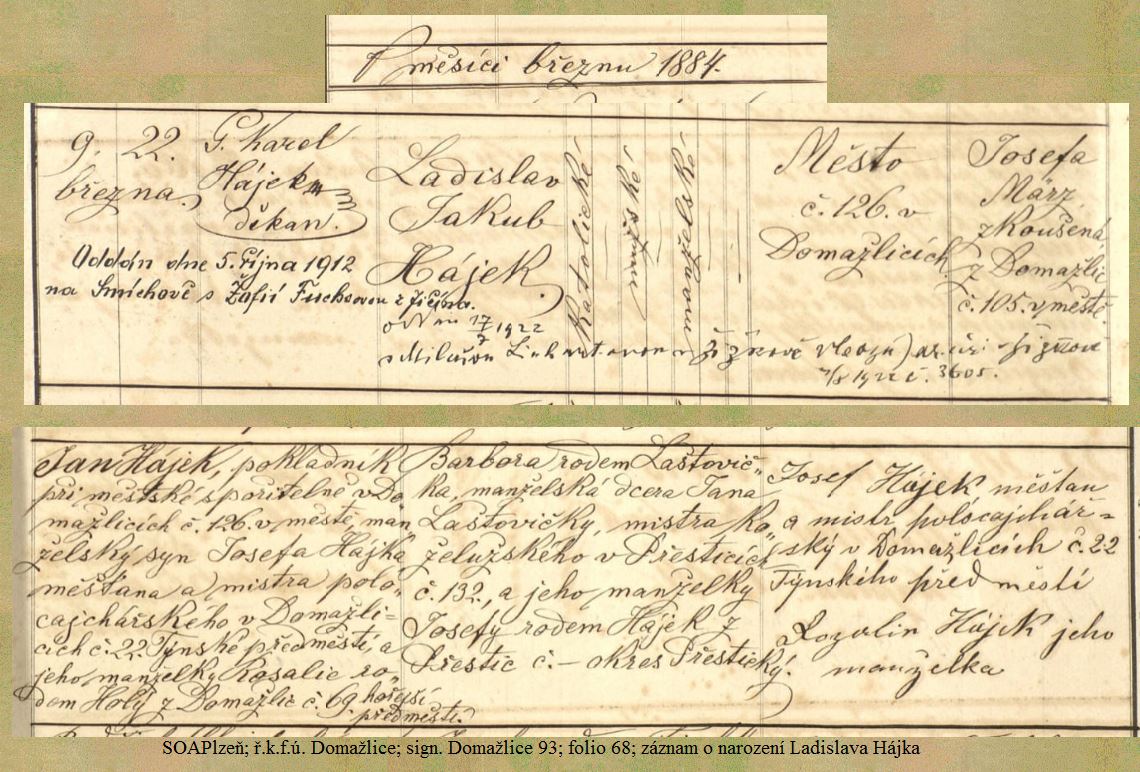 V měsíci březnu 1884.
9. března.
22.
P. Karel
Hájek
děkan.
Ladislav
Jakub
Hájek.
katolické
mužské
manželské
Město
č. 126. v
Domažlicích
Josefa
März,
zkoušená
z Domažlic
č. 105. v městě.
Oddán dne 5. října 1912
na Smíchově s Žofií Fuchsovou z Jičína.
17/7 1922
s Miladou Linhartovou v Žižkově
1922 č. 3605.
Jan Hájek, pokladník
při městské spořitelně v Do-
mažlicích č. 126. v městě, man-
želský syn Josefa Hájka
měšťana a mistra polo-
cajchářského v Domažli-
cích č. 22 Týnské předměstí, a
jeho manželky Rosalie ro-
dem Holý z Domažlic č. 69. hořejší
předměstí.
Barbora rodem Laštovič-
ka, manželská dcera Jana
Laštovičky, mistra ko-
želužského v Přešticích
č. 132., a jeho manželky
Josefy rodem Hájek z
Přeštic č. – okres Přeštický.
Josef Hájek měšťan
a mistr polocajchář-
ský v Domažlicích č. 22
Týnského předměstí
Rozalie Hájek jeho
manželka
SOAPlzeň; ř.k.f.ú. Domažlice; sign. Domažlice 93; folio 68; záznam o narození Ladislava Hájka